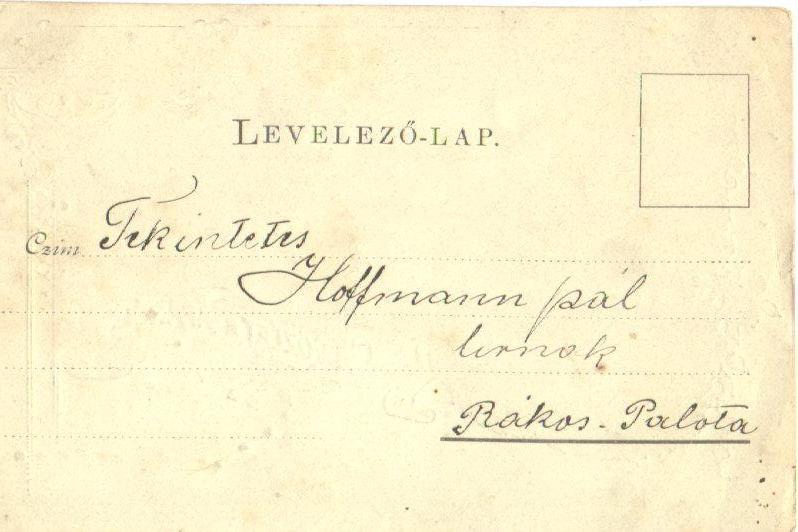 LEVELEZŐ-LAP.
Czim Tekintetes
Hoffmann pál
Rákos-Palota